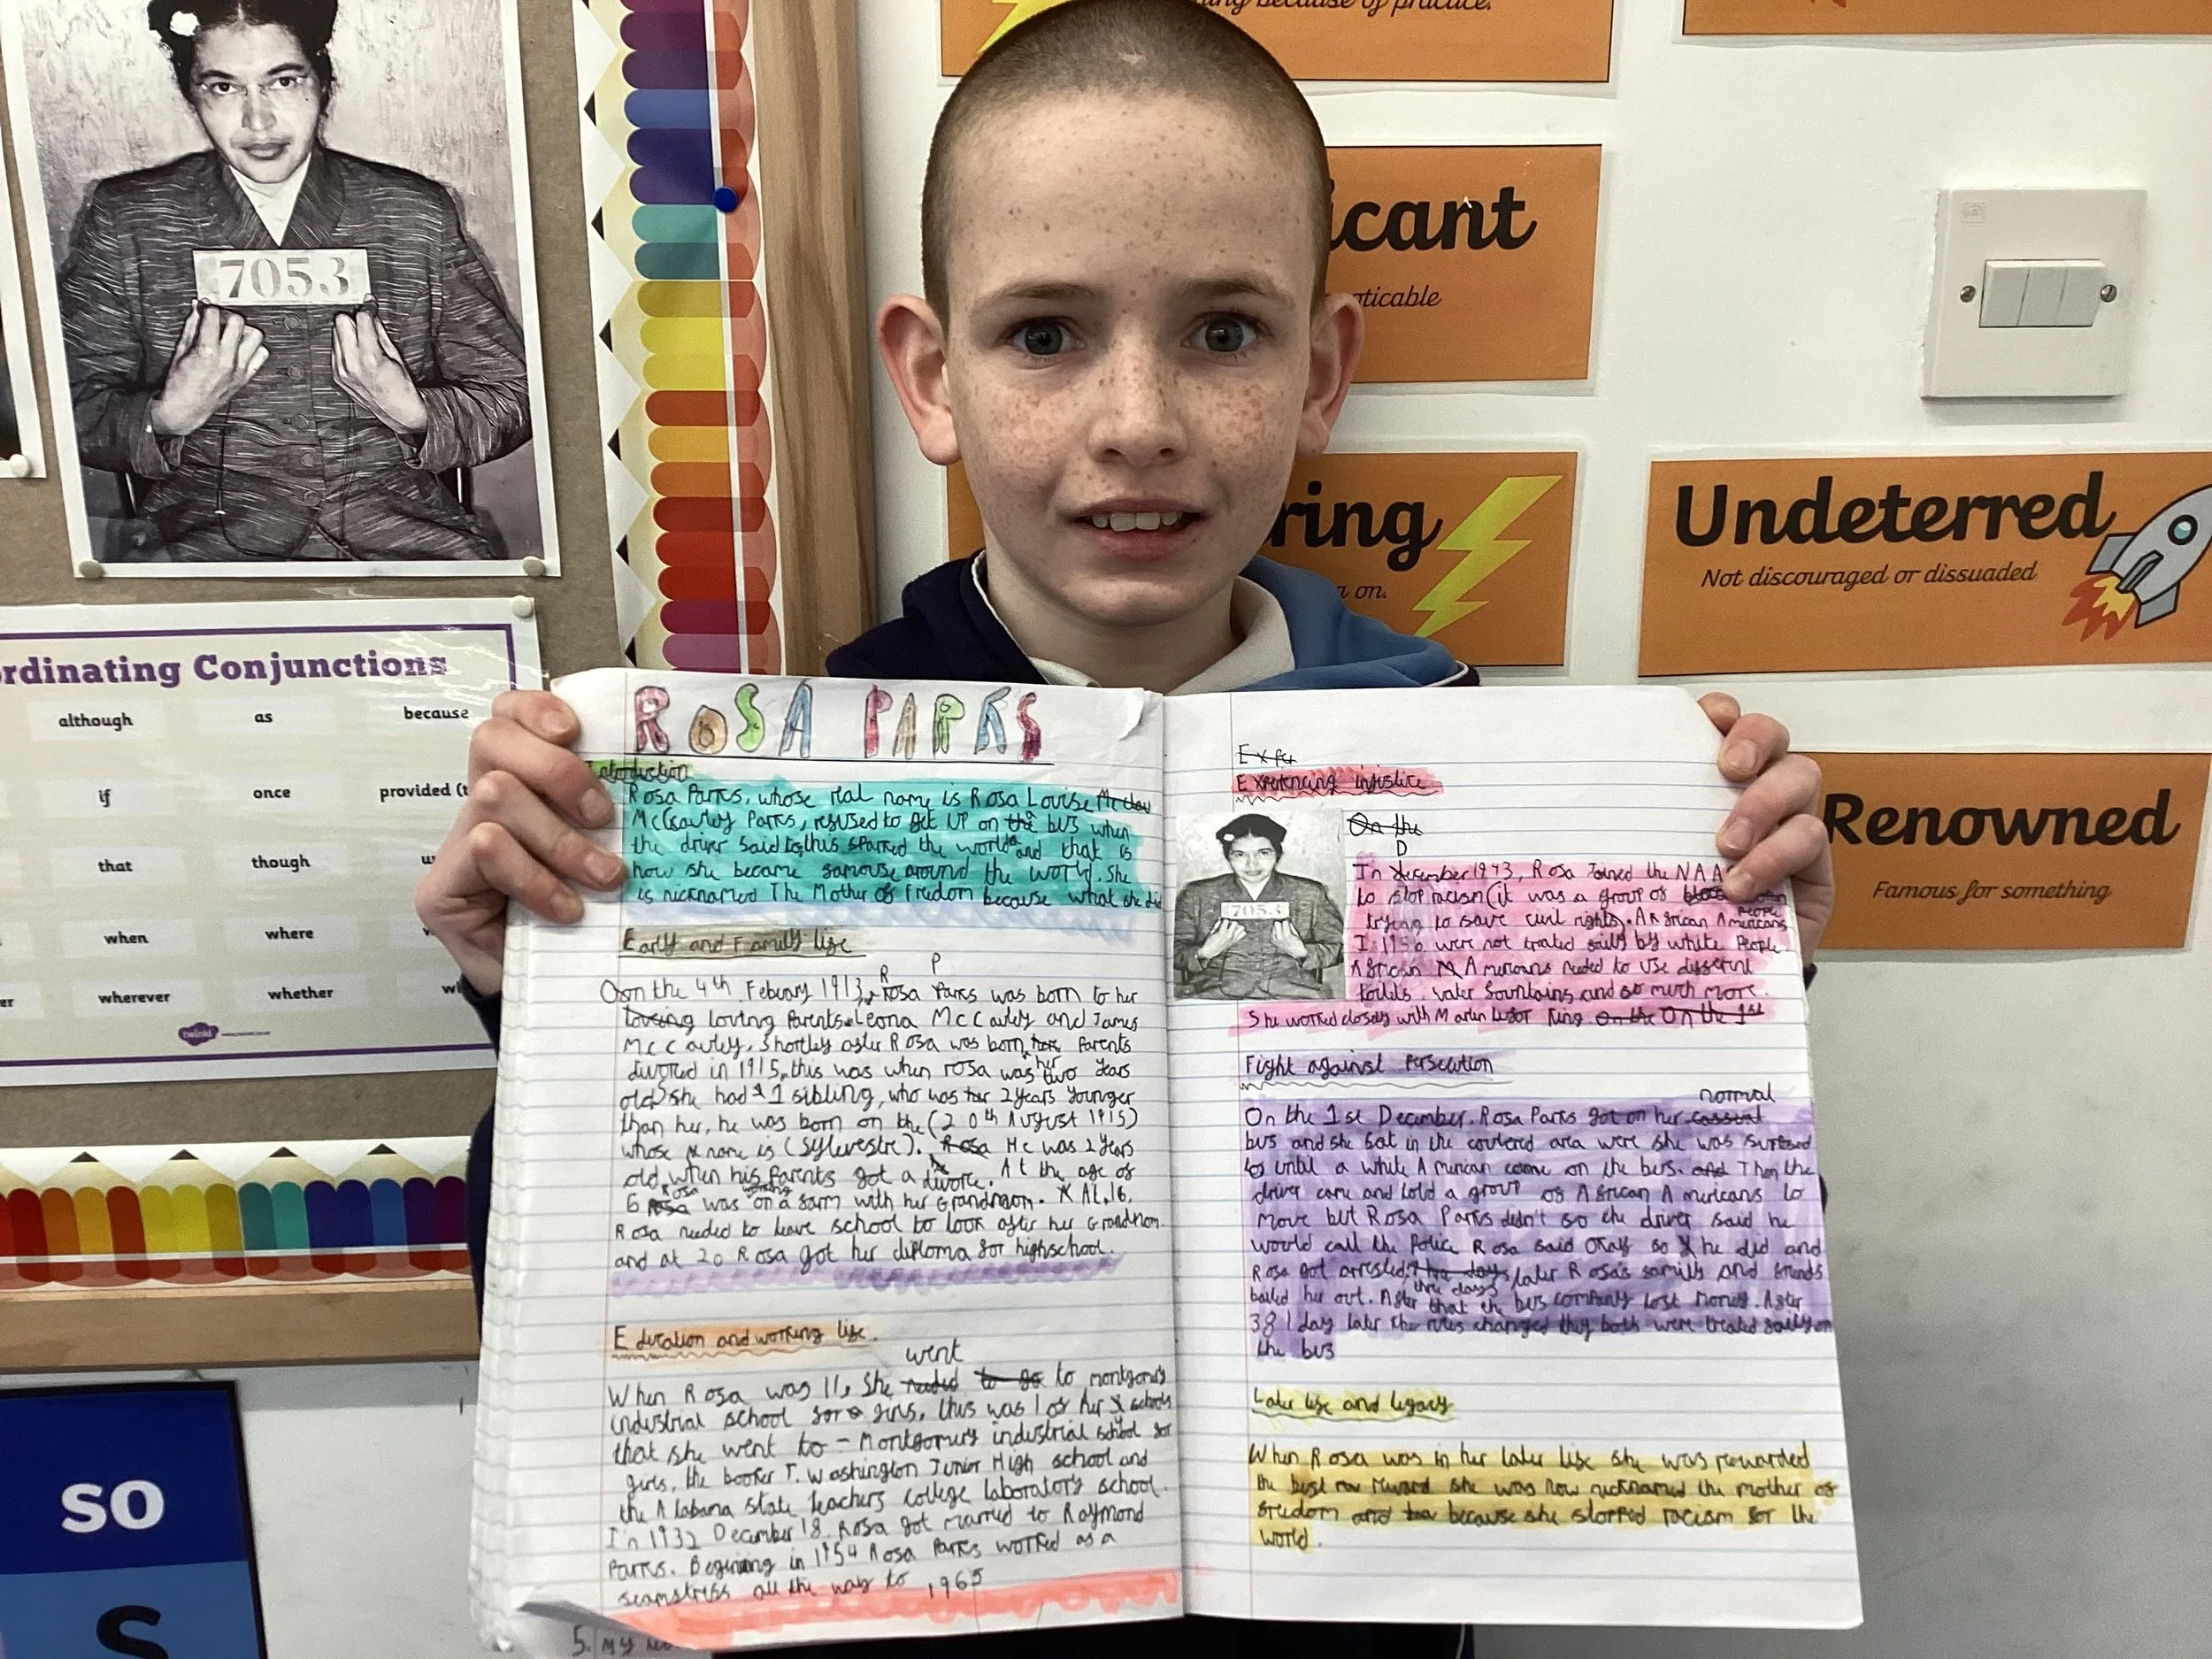 ing because of practice.
7053
icant
oticable
ring
on.
Undeterred
Not discouraged or dissuaded
Renowned
Famous for something
rdinating Conjunctions
although as because
if once provided (t
that though
when where
wherever whether
twinkl
so
s
ROSA PARKS
Introduction
Rosa Parks, whose real name is Rosa Louise
McCauley Parks, refused to get up on the bus when
the driver said to, this sparked the world and that is
how she became famouse around the world. She
is nicknamed The Mother of Fredom because what she did
Early and Family life
on the 4th Febuary 1913, Rosa Parks was born to her
loving loving Parents Leona McCauley and James
McCauley. Shortley after Rosa was born her Parents
divorced in 1915, this was when rosa was two years
old she had 1 sibling, who was 2 years younger
than her, he was born on the (20th August 1915)
whose name is (Sylvestre). Rosa He was 2 years
old when his Parents got a divorce. At the age of
6 Rosa was working on a farm with her Grandmom. At 16,
Rosa needed to leave school to look after her Grandmom
and at 20 Rosa got her diploma for highschool.
Education and working life.
went
When Rosa was 11, She needed to go to montgomery
industrial school for girls, this was 1 of her schools
that she went to - Montgomery industrial school for
girls, the booker T. Washington Junior High school and
the Alabama state teachers college laboratory school.
In 1932 December 18 Rosa got married to Raymond
Parks. Beginning in 1954 Rosa Parks worked as a
seamstress all the way to 1965
5. my
Exper
Experiencing injustice
7053
On the
D
In december 1943, Rosa Joined the NAA
to stop racism (it was a group of People
trying to save civil rights. African Americans
I 1950 were not treated fairly by white People
African Americans needed to use different
toilets, water fountains and so much more.
She worked closely with Martin King. On the On the 1st
Fight against Persecution
normal
On the 1st December, Rosa Parks got on her cassual
bus and she sat in the coulered area were she was
to until a white American came on the bus. and Then the
driver came and told a group of African Americans to
move but Rosa Parks didn't so the driver said he
would call the Police Rosa said Okay so he did and
Rosa got arrested, three days later Rosa's family and friends
bailed her out. After three days that the bus company lost money. After
381 day later the rules changed they both were treated fairly on
the bus
Later life and legacy
When Rosa was in her later life she was rewarded
the best reward she was now nicknamed the mother of
freedom and because she stopped racism for the
world.